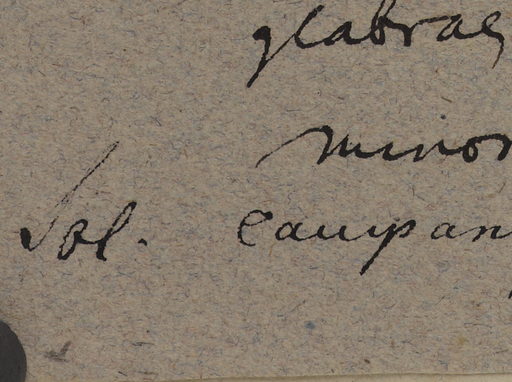 glabrae
minor
Sol. campan